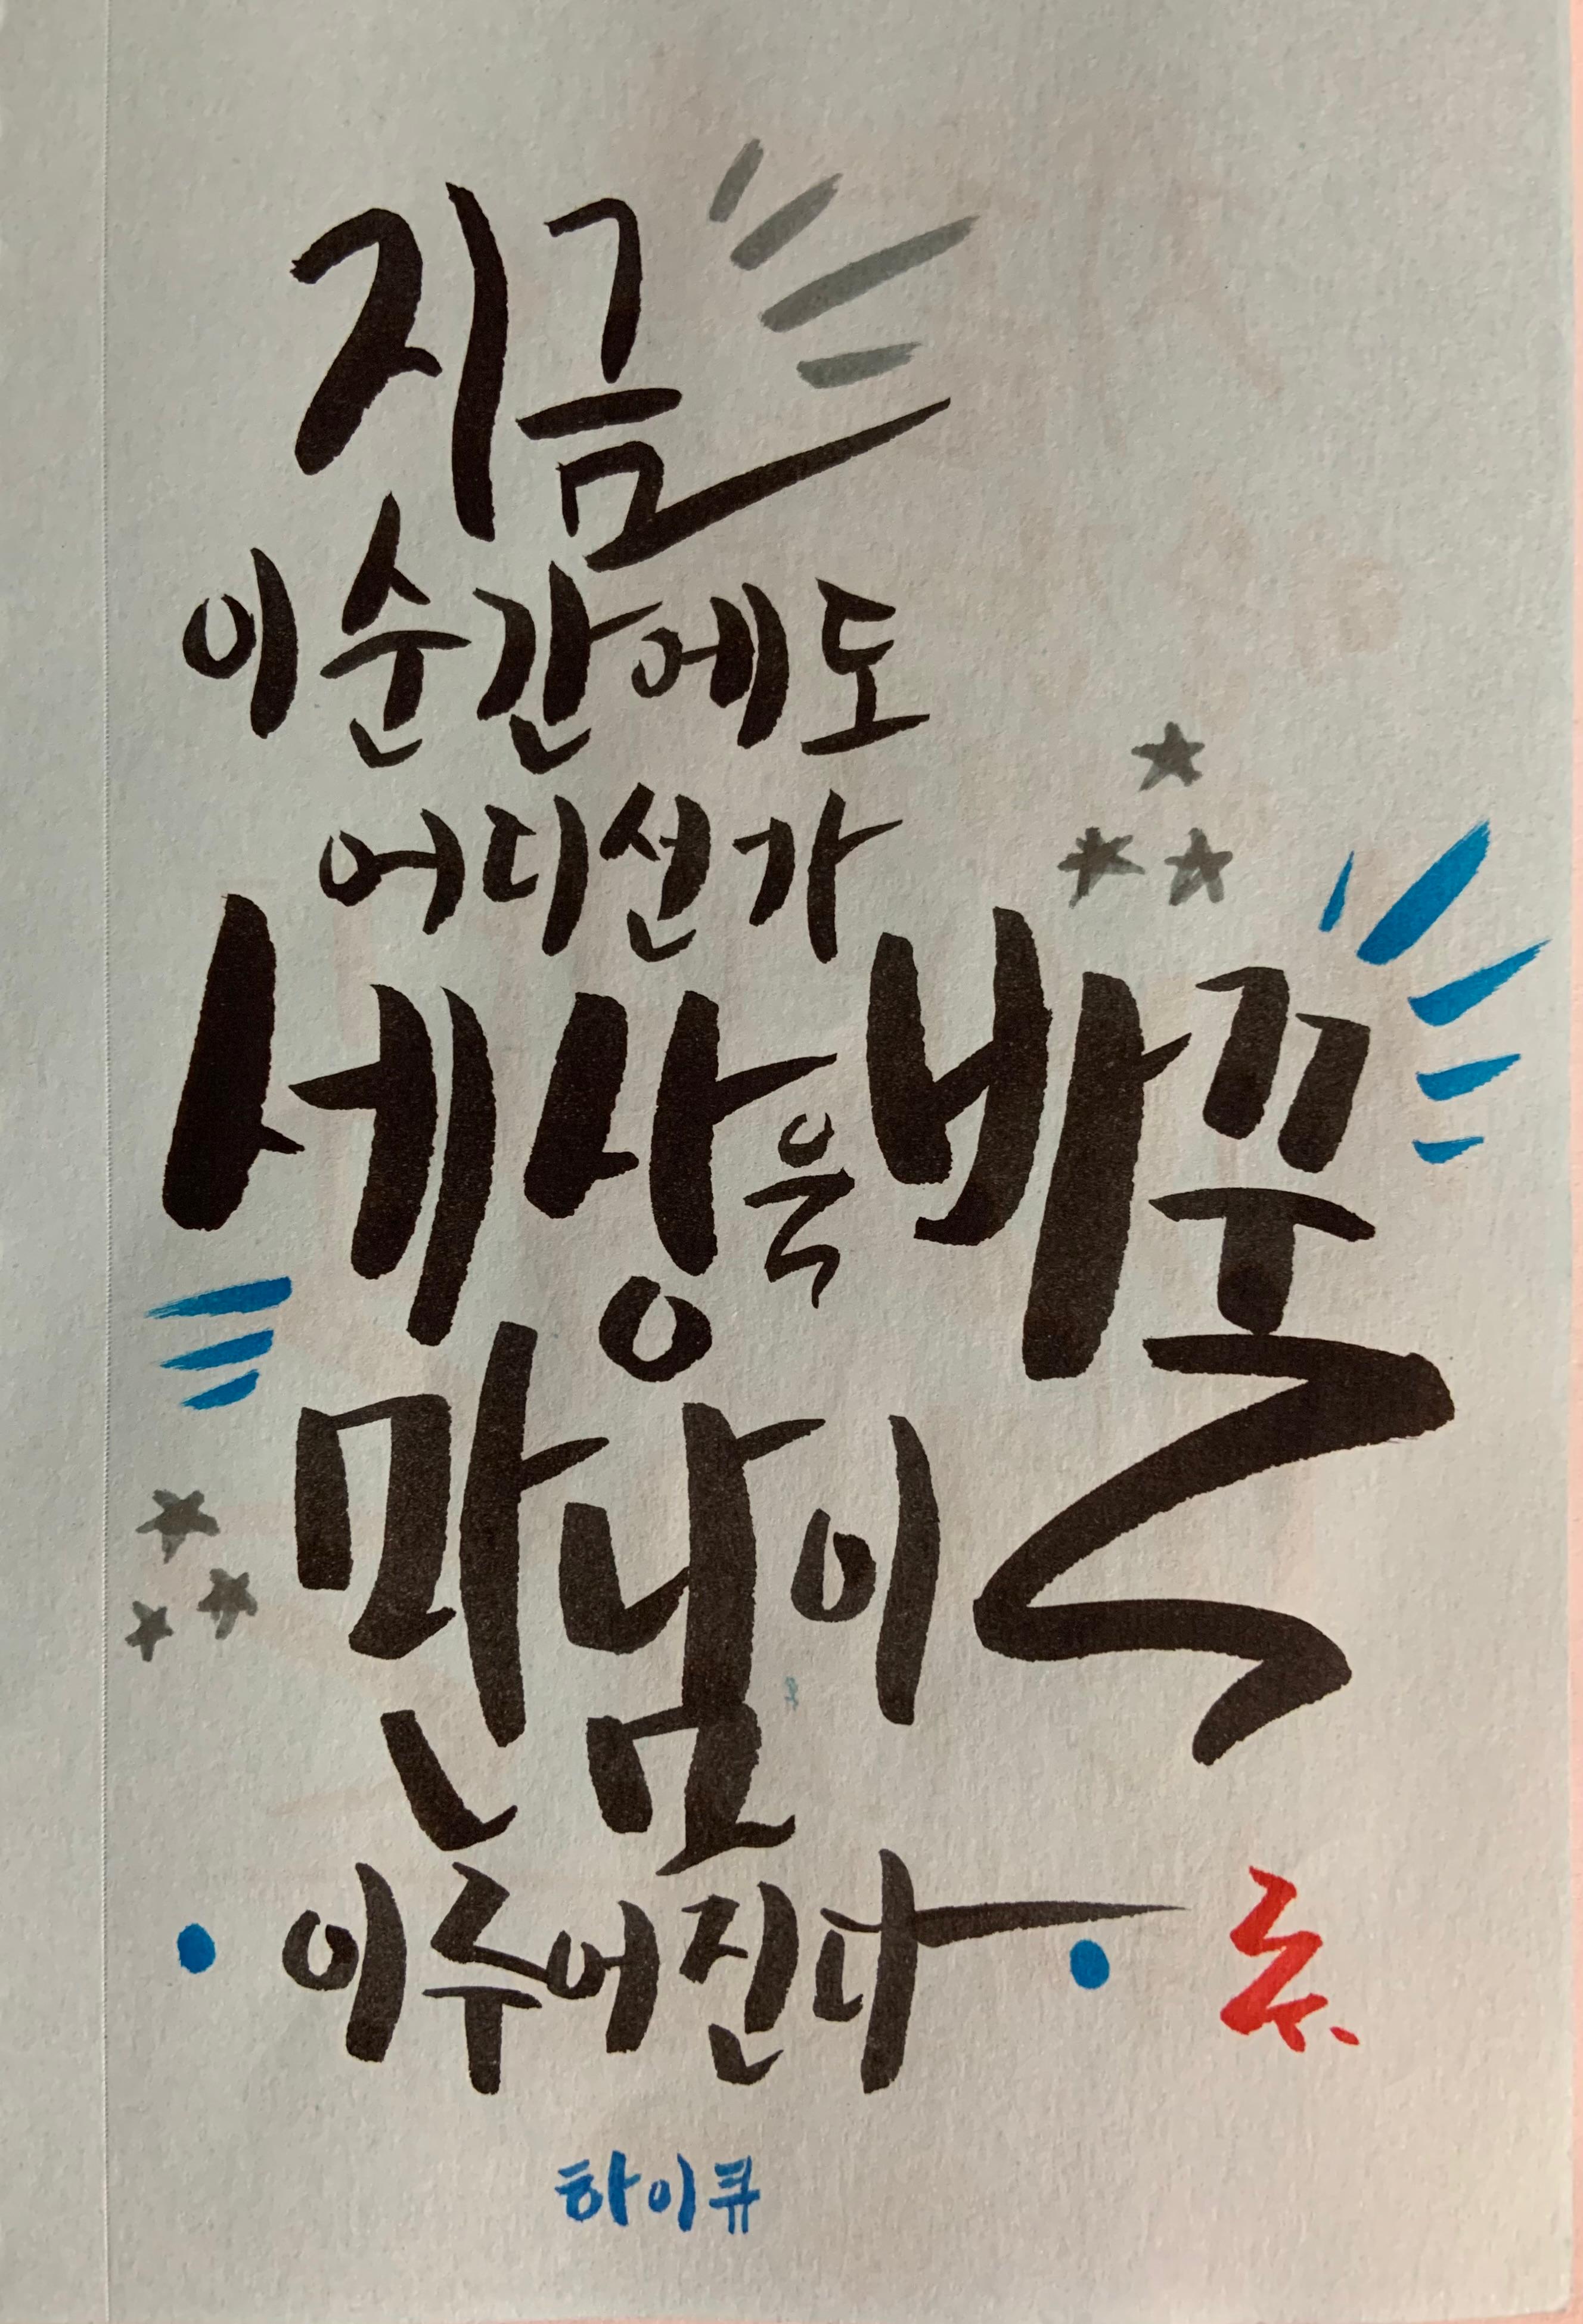 지금
이 순간에도
어디선가
세상을 바꿀
만남이
이루어진다
하이큐